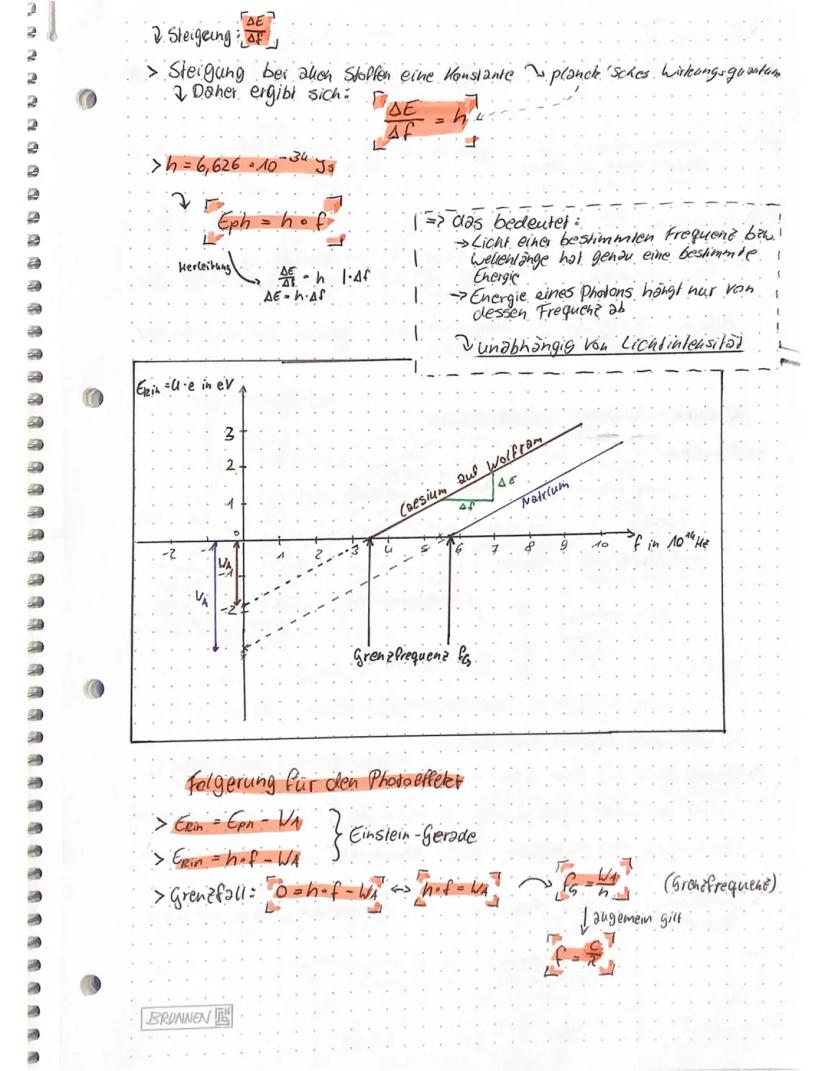 ↴ Steigung: ΔE/Δf
> Steigung bei allen Stoffen eine Konstante ↴ planck'sches Wirkungsquantum
↴ Daher ergibt sich:
ΔE/Δf = h
> h = 6,626 · 10⁻³⁴ Js
Eph = h · f
Herleitung
ΔE/Δf = h | · Δf
ΔE = h · Δf
=> das bedeutet:
→ Licht einer bestimmten Frequenz bzw.
Wellenlänge hat genau eine bestimmte
Energie
→ Energie eines Photons hängt nur von
dessen Frequenz ab
↴ unabhängig von Lichtintensität
Ekin = U · e in eV
3
2
1
0
-2 -1 1 2 3 4 5 6 7 8 9 10 f in 10¹⁴ Hz
-1
-2
Caesium auf Wolfram
ΔE
Δf
Natrium
WA
WA
Grenzfrequenz fG
Folgerung für den Photoeffekt
> Ekin = Eph - WA
> Ekin = h · f - WA
} Einstein-Gerade
> Grenzfall: 0 = h · f - WA <-> h · f = WA → fG = WA/h (Grenzfrequenz)
↓ allgemein gilt
f = c/λ
BRUNNEN